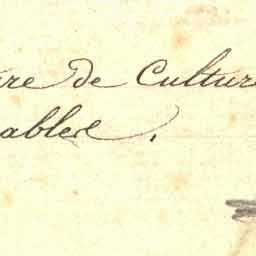 re de Culture
ables.